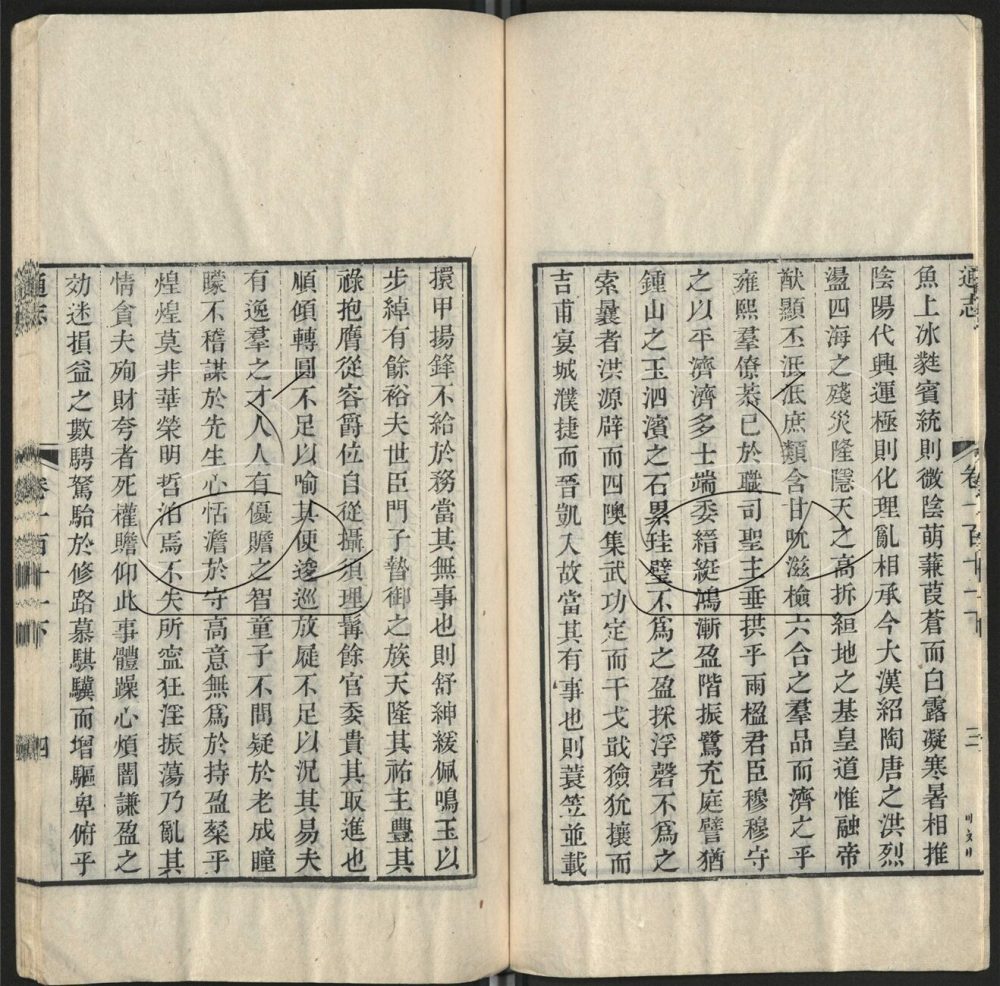 通志
卷一百十一下
三
魚上冰蕤賓統則微陰萌蒹葭蒼而白露凝寒暑相推
陰陽代興運極則化理亂相承今大漢紹陶唐之洪烈
盪四海之殘災隆隱天之高拆絙地之基皇道惟融帝
猷顯丕泜泜庶類含甘吮滋檢六合之羣品而濟之乎
雍熙羣僚恭已於職司聖主垂拱乎兩楹君臣穆穆守
之以平濟濟多士端委縉綎鴻漸盈階振鷺充庭譬猶
鍾山之玉泗濱之石累珪璧不爲之盈採浮磬不爲之
索曩者洪源辟而四隩集武功定而干戈戢獫狁攘而
吉甫宴城濮捷而晉凱入故當其有事也則蓑笠並載
擐甲揚鋒不給於務當其無事也則舒紳緩佩鳴玉以
步綽有餘裕夫世臣門子暬御之族天隆其祐主豐其
祿抱膺從容爵位自從攝須理髯餘官委貴其取進也
順傾轉圓不足以喻其便逡巡放屣不足以況其易夫
有逸羣之才人人有優贍之智童子不問疑於老成瞳
矇不稽謀於先生心恬澹於守高意無爲於持盈粲乎
煌煌莫非華榮明哲泊焉不失所寧狂淫振蕩乃亂其
情貪夫殉財夸者死權瞻仰此事體躁心煩闇謙盈之
効迷損益之數騁駑駘於修路慕騏驥而增驅卑俯乎
通志
卷一百十一下
四